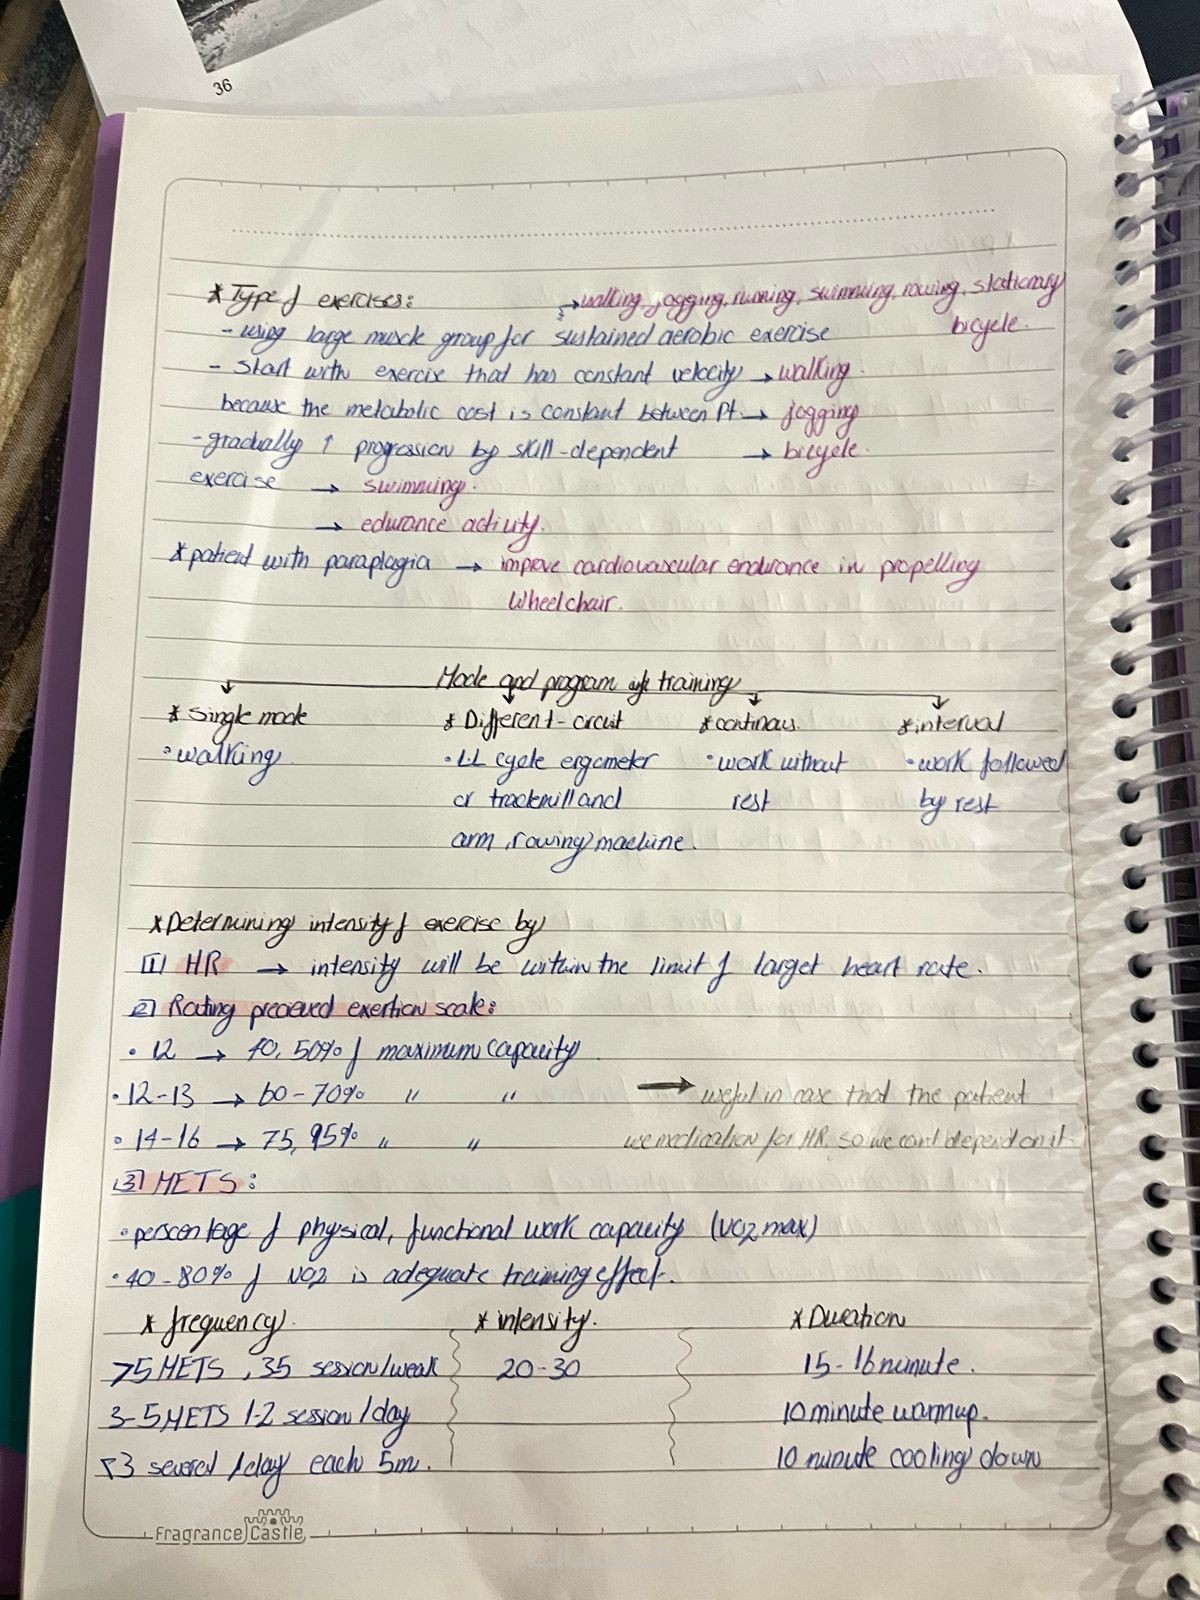 36
* Type of exercises: → walking, jogging, running, swimming, rowing, stationary
bicycle.
- using large muscle group for sustained aerobic exercise
- Start with exercise that has constant velocity → walking.
because the metabolic cost is constant between Pt. → jogging
- gradually ↑ progression by skill-dependent → bicycle.
exercise → swimming.
→ edurance activity.
* patient with paraplagia → improve cardiovascular endurance in propelling
Wheelchair.
Mode and program of training
* Single mode * Different-circuit * continous. * interval
• walking • LL cycle ergometer • work without • work followed
or trackmill and rest by rest
arm, rowing machine.
* Determining intensity of exercise by
[1] HR → intensity will be within the limit of target heart rate.
[2] Rating precieved exertion scale:
• 12 → 40, 50% of maximum capacity
• 12-13 → 60-70% " " → useful in case that the patient
• 14-16 → 75, 95% " " use medication for HR, so we cant depend on it.
[3] METS:
• perscentage of physical, functional work capacity (VO2 max)
• 40-80% of VO2 is adequate training effect.
* frequency. * intensity. * Duration
>5 METS, 35 session/weak 20-30 15-16 minute.
3-5 METS 1-2 session/day 10 minute warmup.
<3 several /day each 5m. 10 minute cooling down
Fragrance Castle